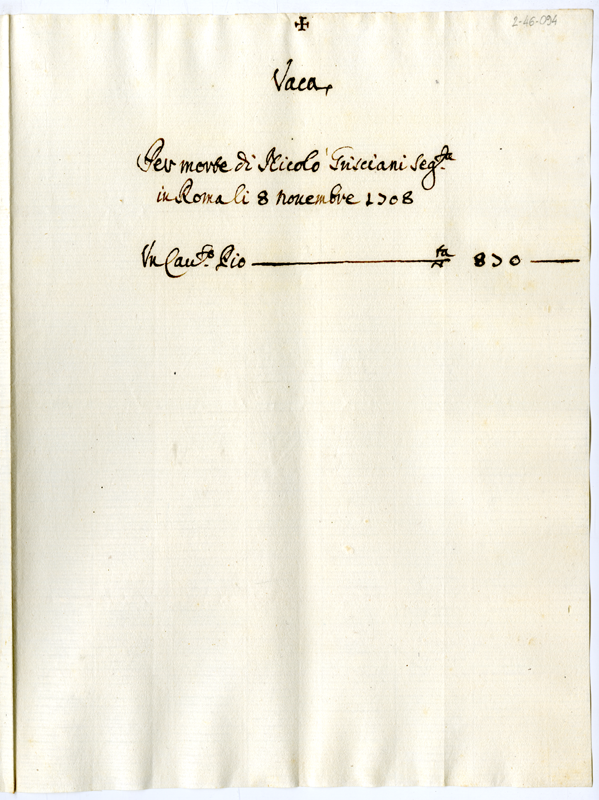 ✠
2-46-094
Vaca
Per morte di Nicolò Grisciani seg.ta
in Roma li 8 nouembre 1708
Vn Cau.to Pio — ta 870 —